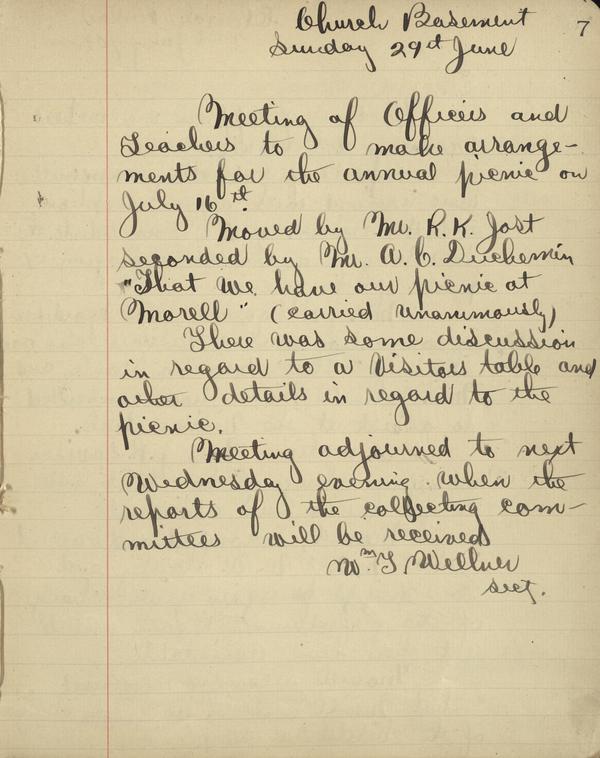 Church Basement 7
Sunday 29th June
Meeting of Officers and
Teachers to make arrange-
ments for the annual picnic on
July 16th
Moved by Mr. R.K. Jost
seconded by Mr. A.C. Duchemin
"That we have our picnic at
Morell" (carried unanimously)
There was some discussion
in regard to a Visitors table and
other details in regard to the
picnic.
Meeting adjourned to next
Wednesday evening when the
reports of the collecting com-
mittees will be received
Wm. T Wellner
Sect.